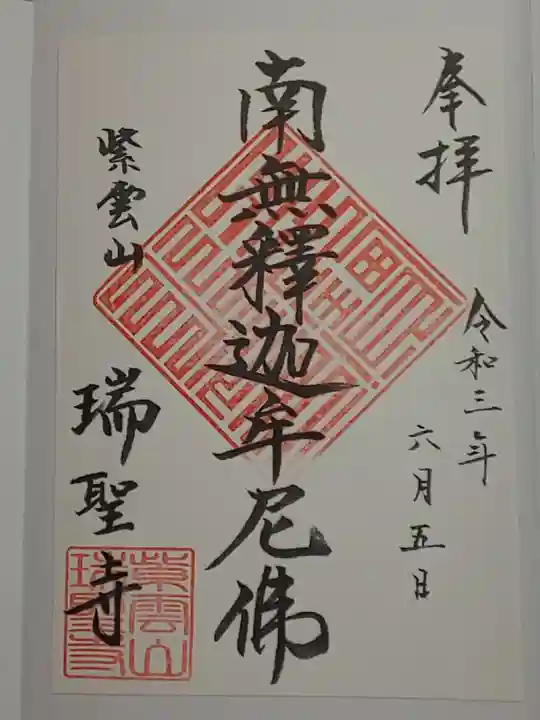 奉拝
令和三年
六月五日
南無釋迦牟尼佛
紫雲山
瑞聖寺
紫雲山
瑞聖寺